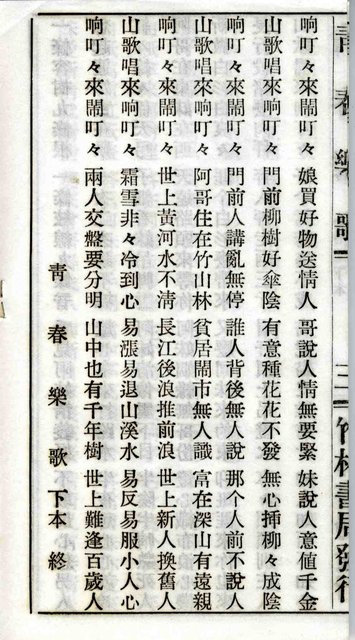 靑春樂歌 下本 三 竹林書局發行
响叮々來鬧叮々 娘買好物送情人 哥說人情無要緊 妹說人意値千金
山歌唱來响叮々 門前柳樹好傘陰 有意種花花不發 無心揷柳々成陰
响叮々來鬧叮々 門前人講亂無停 誰人背後無人說 那个人前不說人
山歌唱來响叮々 阿哥住在竹山林 貧居鬧市無人識 富在深山有遠親
响叮々來鬧叮々 世上黃河水不清 長江後浪推前浪 世上新人換舊人
山歌唱來响叮々 霜雪非々冷到心 易漲易退山溪水 易反易服小人心
响叮々來鬧叮々 兩人交盤要分明 山中也有千年樹 世上難逢百歲人
靑春樂歌下本終